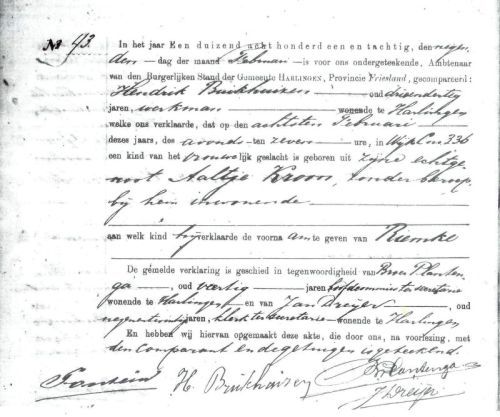 No 43.
In het jaar Een duizend acht honderd een en tachtig, den negen
den — dag der maand Februari — is voor ons ondergeteekende, Ambtenaar
van den Burgerlijken Stand der Gemeente HARLINGEN, Provincie Friesland, gecompareerd:
Hendrik Buikhuizen — oud drieendertig
jaren, werkman wonende te Harlingen
welke ons verklaarde, dat op den achtsten Februari
dezes jaars, des avonds ten zeven ure, in Wijk C no. 336
een kind van het vrouwelijk geslacht is geboren uit zijne echtge-
noot Aaltje Kroon, zonder beroep,
bij hem inwonende
aan welk kind hij verklaarde de voornaam te geven van Riemke
De gemelde verklaring is geschied in tegenwoordigheid van Broer Planten-
ga, oud veertig jaren, ter secretarie
wonende te Harlingen en van Jan Dreijer, oud
jaren, klerk ter secretarie wonende te Harlingen
En hebben wij hiervan opgemaakt deze akte, die door ons, na voorlezing, met
den Comparant en de getuigen is geteekend.
H. Buikhuizen
Plantenga
J Dreijer